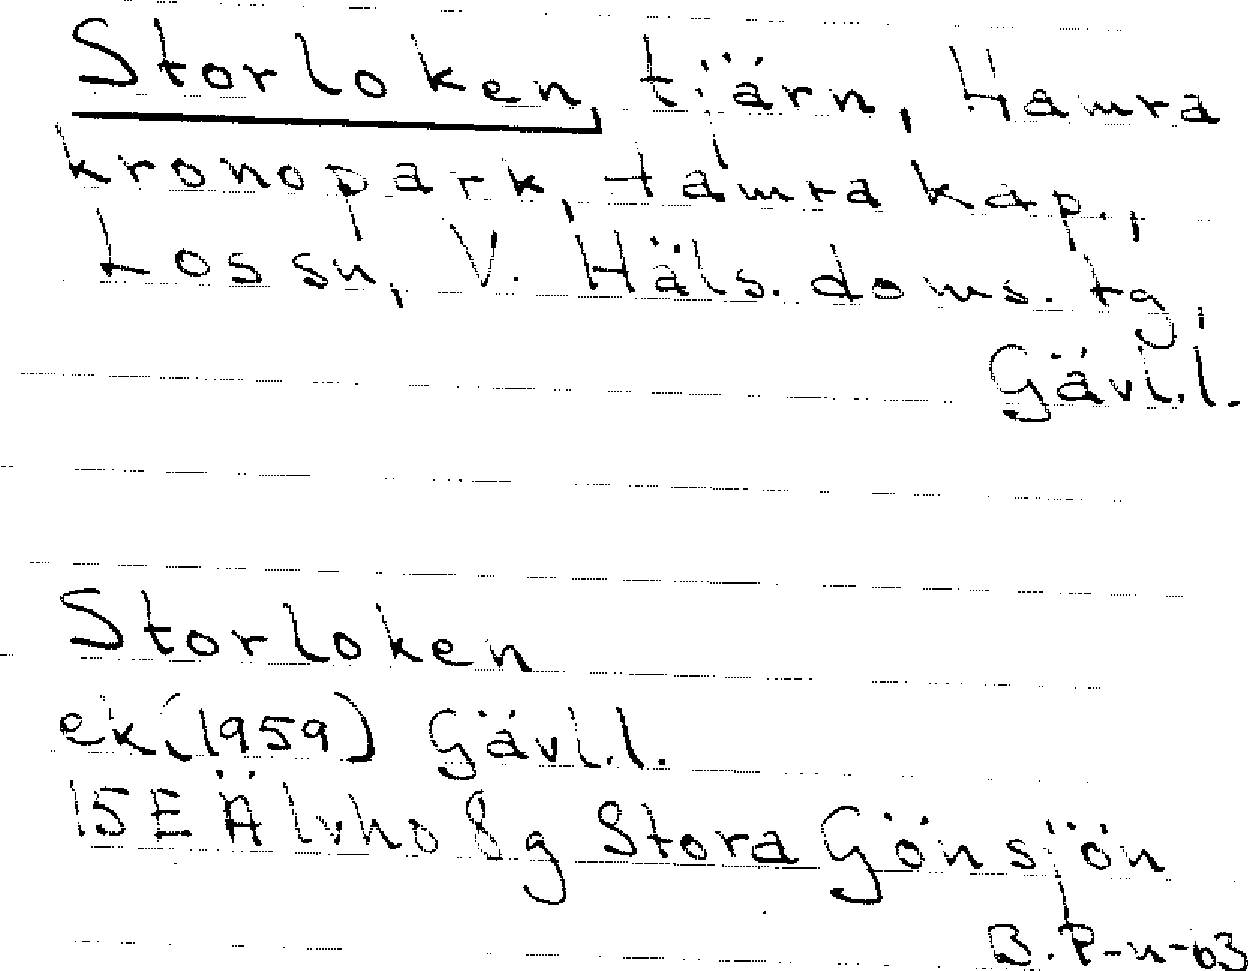 Storloken, tjärn, Hamra
kronopark, Hamra kap.,
Los sn, V. Häls. doms. tg,
Gävl.l.
Storloken
ek.(1959) Gävl.l.
15E Älvho 8g Stora Gönsjön
B.P-n-03